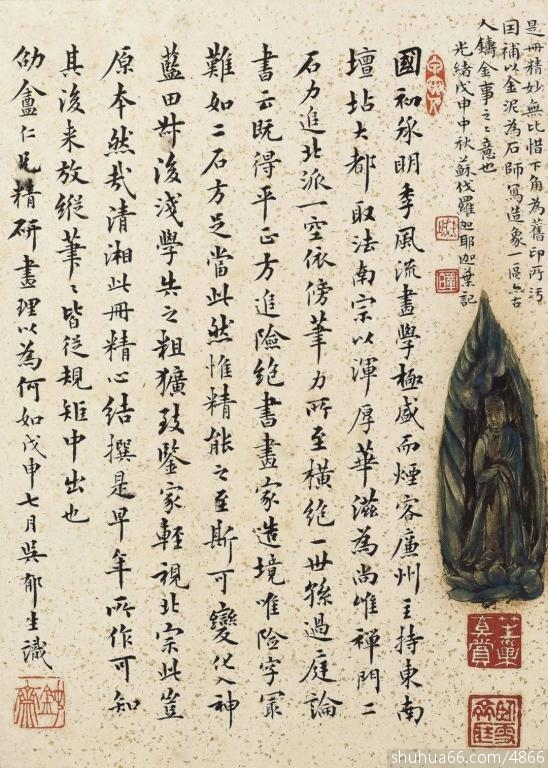 是冊精妙無比惜下角為舊印所污
囙補以金泥為石師寫造象一區亦古
人鑄金事之之意也
光緒戊申中秋蘇伐羅迦耶迦葉記
國初承明季風流畫學極盛而煙客廉州主持東南
壇坫大都取法南宗以渾厚華滋為尚惟禪門二
石力追北派一空依傍筆力所至橫絕一世孫過庭論
書云既得平正方追險絕書畫家造境唯險字最
難如二石方足當此然惟精能之至斯可變化入神
藍田叔後淺學失之粗獷致鑒家輕視北宗此豈
原本然哉清湘此冊精心結撰是早年所作可知
其後來放縱筆〻皆從規矩中出也
劬盦仁兄精研畫理以為何如戊申七月吳郁生識
鈍齋
shuhua66.com/4866